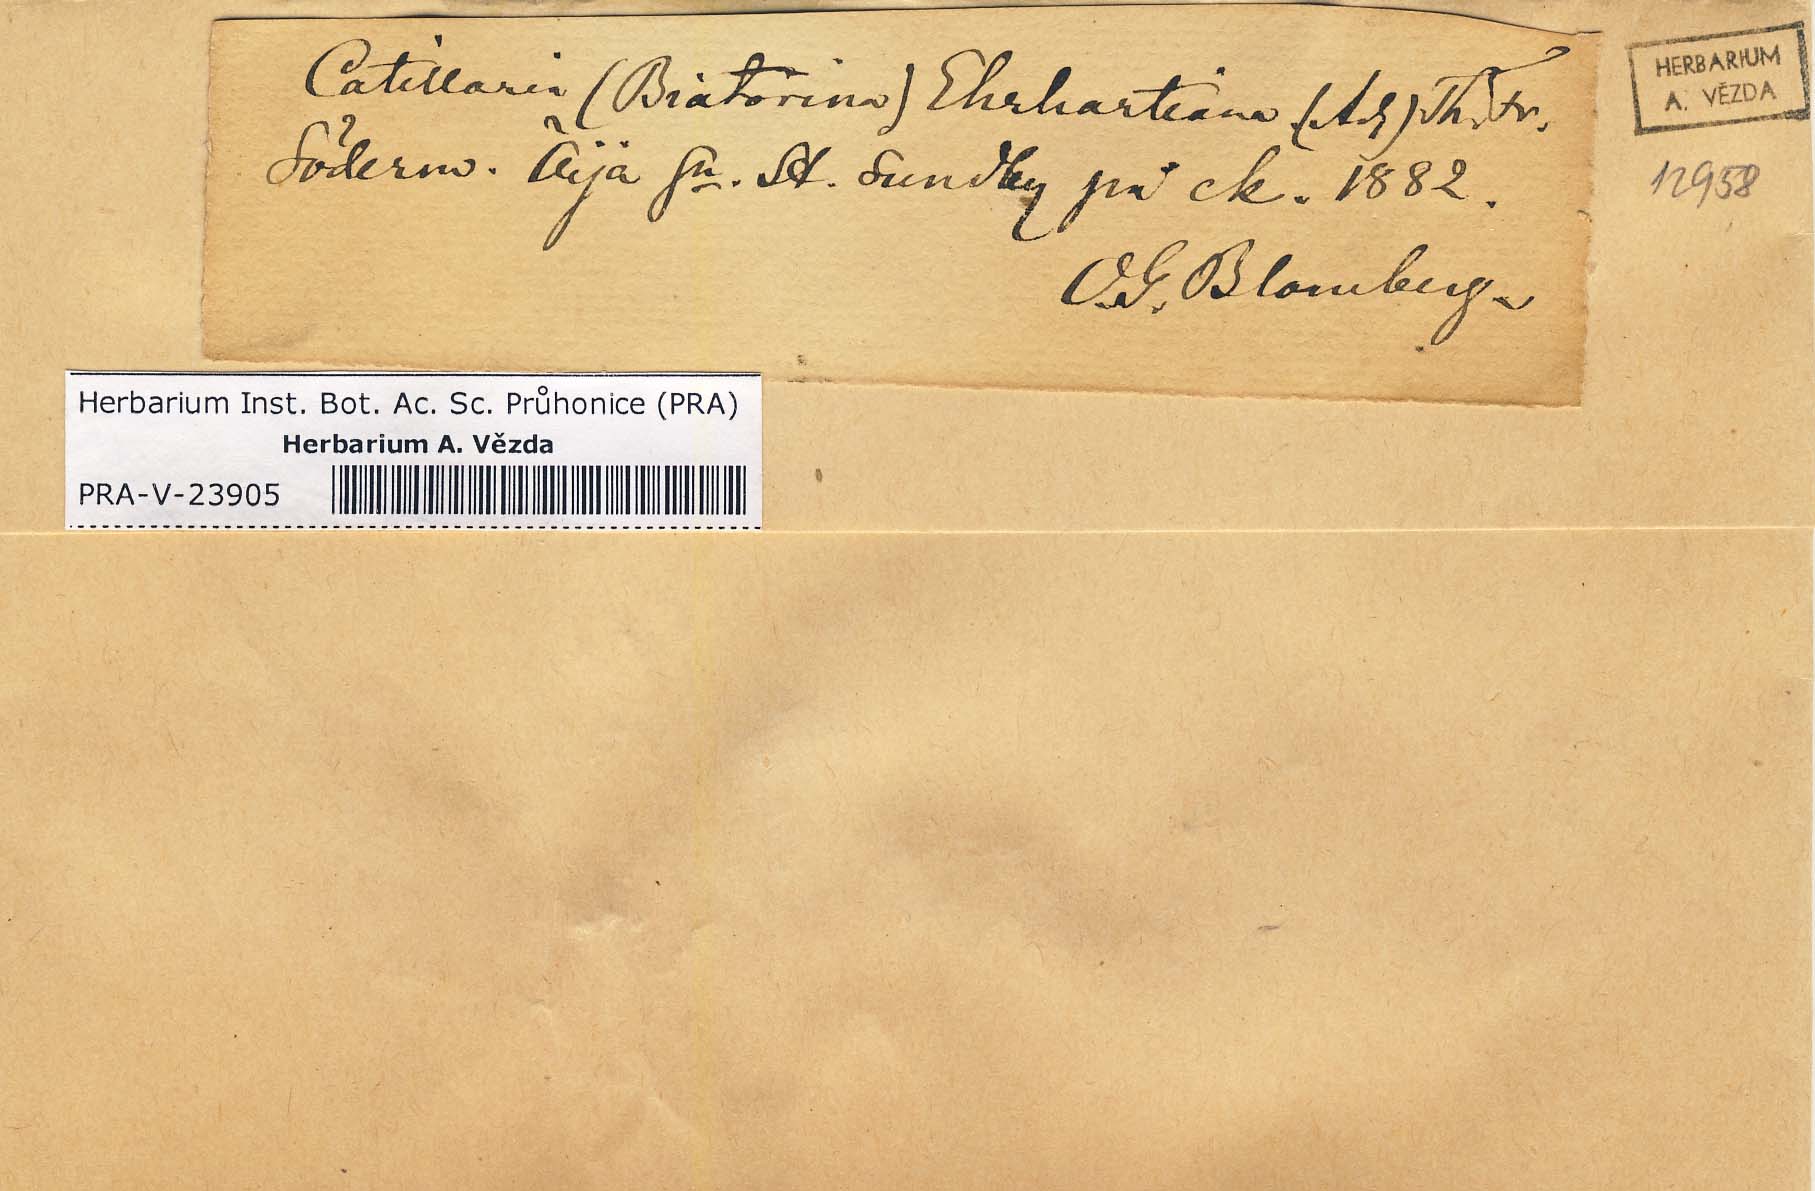 Catillaria (Biatorina) Ehrhartiana (Ach) Th. Fr.
Söderm. Äija sn. St. Sundby på ek. 1882.
O.G. Blomberg
HERBARIUM
A. VĚZDA
12958
Herbarium Inst. Bot. Ac. Sc. Průhonice (PRA)
Herbarium A. Vězda
PRA-V-23905